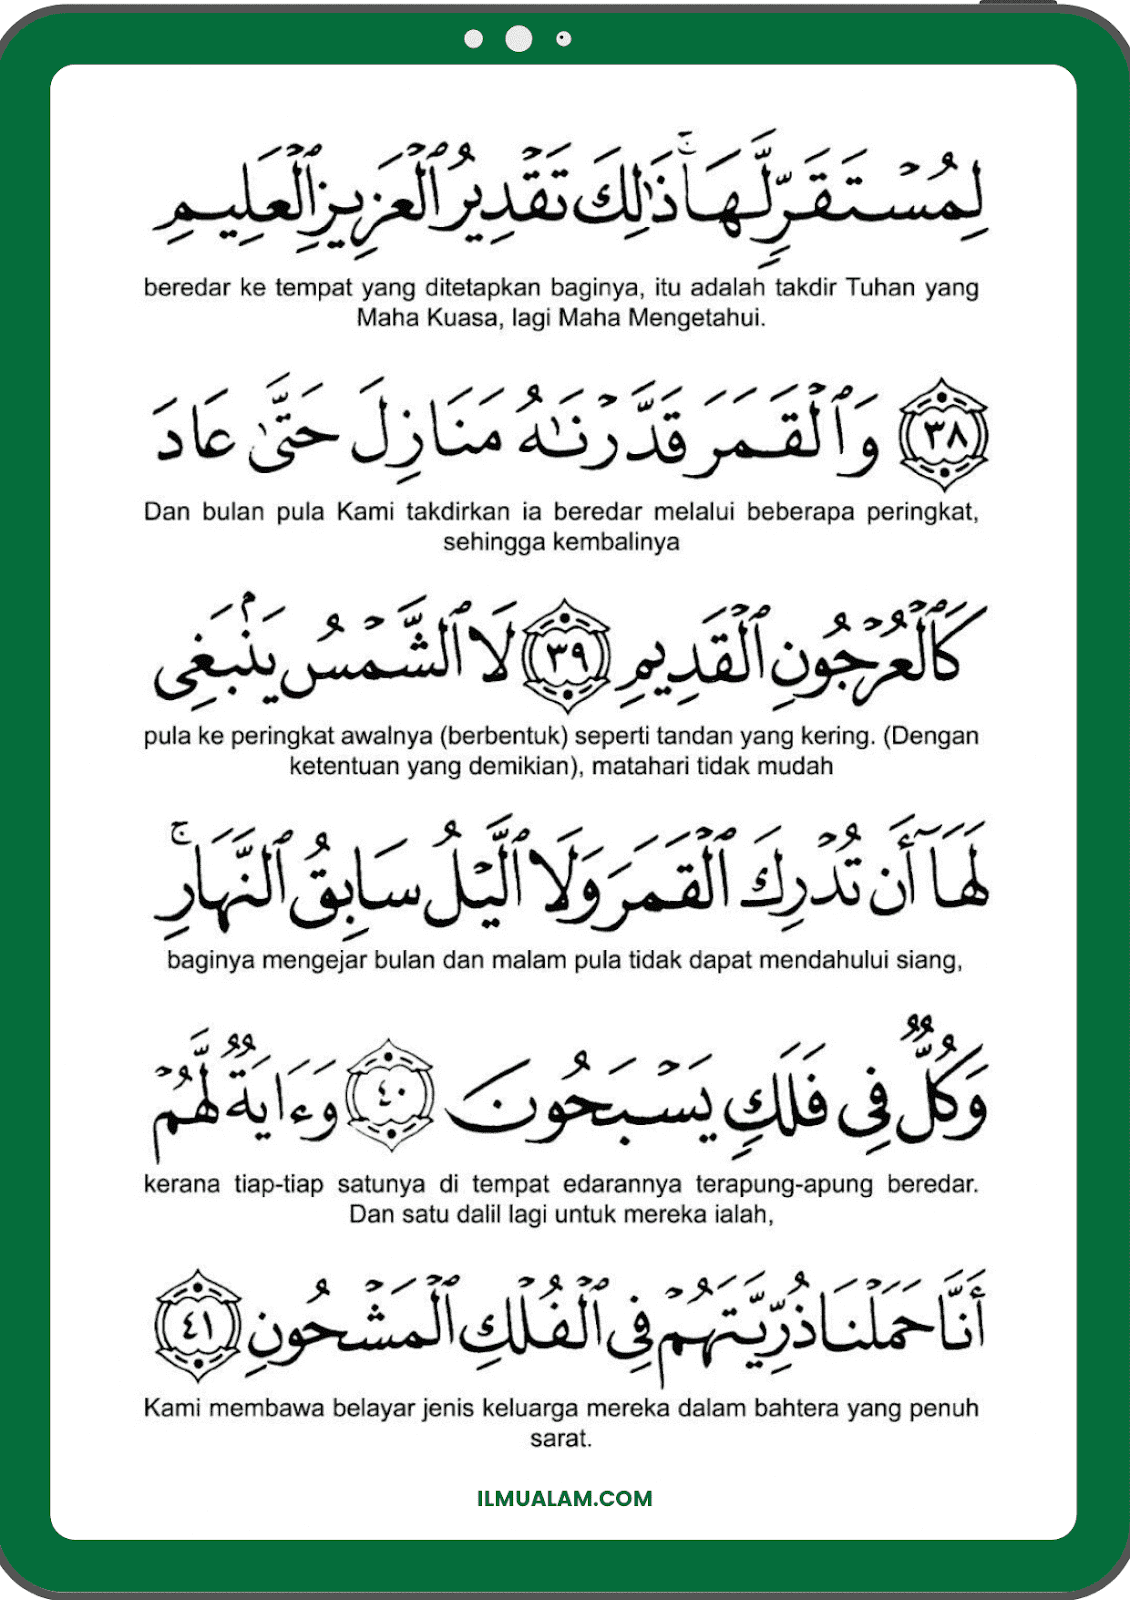 لِمُسْتَقَرٍّ لَّهَا ۚ ذَٰلِكَ تَقْدِيرُ ٱلْعَزِيزِ ٱلْعَلِيمِ
beredar ke tempat yang ditetapkan baginya, itu adalah takdir Tuhan yang
Maha Kuasa, lagi Maha Mengetahui.
٣٨ وَٱلْقَمَرَ قَدَّرْنَٰهُ مَنَازِلَ حَتَّىٰ عَادَ
Dan bulan pula Kami takdirkan ia beredar melalui beberapa peringkat,
sehingga kembalinya
كَٱلْعُرْجُونِ ٱلْقَدِيمِ ٣٩ لَا ٱلشَّمْسُ يَنۢبَغِى
pula ke peringkat awalnya (berbentuk) seperti tandan yang kering. (Dengan
ketentuan yang demikian), matahari tidak mudah
لَهَآ أَن تُدْرِكَ ٱلْقَمَرَ وَلَا ٱلَّيْلُ سَابِقُ ٱلنَّهَارِ ۚ
baginya mengejar bulan dan malam pula tidak dapat mendahului siang,
وَكُلٌّ فِى فَلَكٍ يَسْبَحُونَ ٤٠ وَءَايَةٌ لَّهُمْ
kerana tiap-tiap satunya di tempat edarannya terapung-apung beredar.
Dan satu dalil lagi untuk mereka ialah,
أَنَّا حَمَلْنَا ذُرِّيَّتَهُمْ فِى ٱلْفُلْكِ ٱلْمَشْحُونِ ٤١
Kami membawa belayar jenis keluarga mereka dalam bahtera yang penuh
sarat.
ILMUALAM.COM